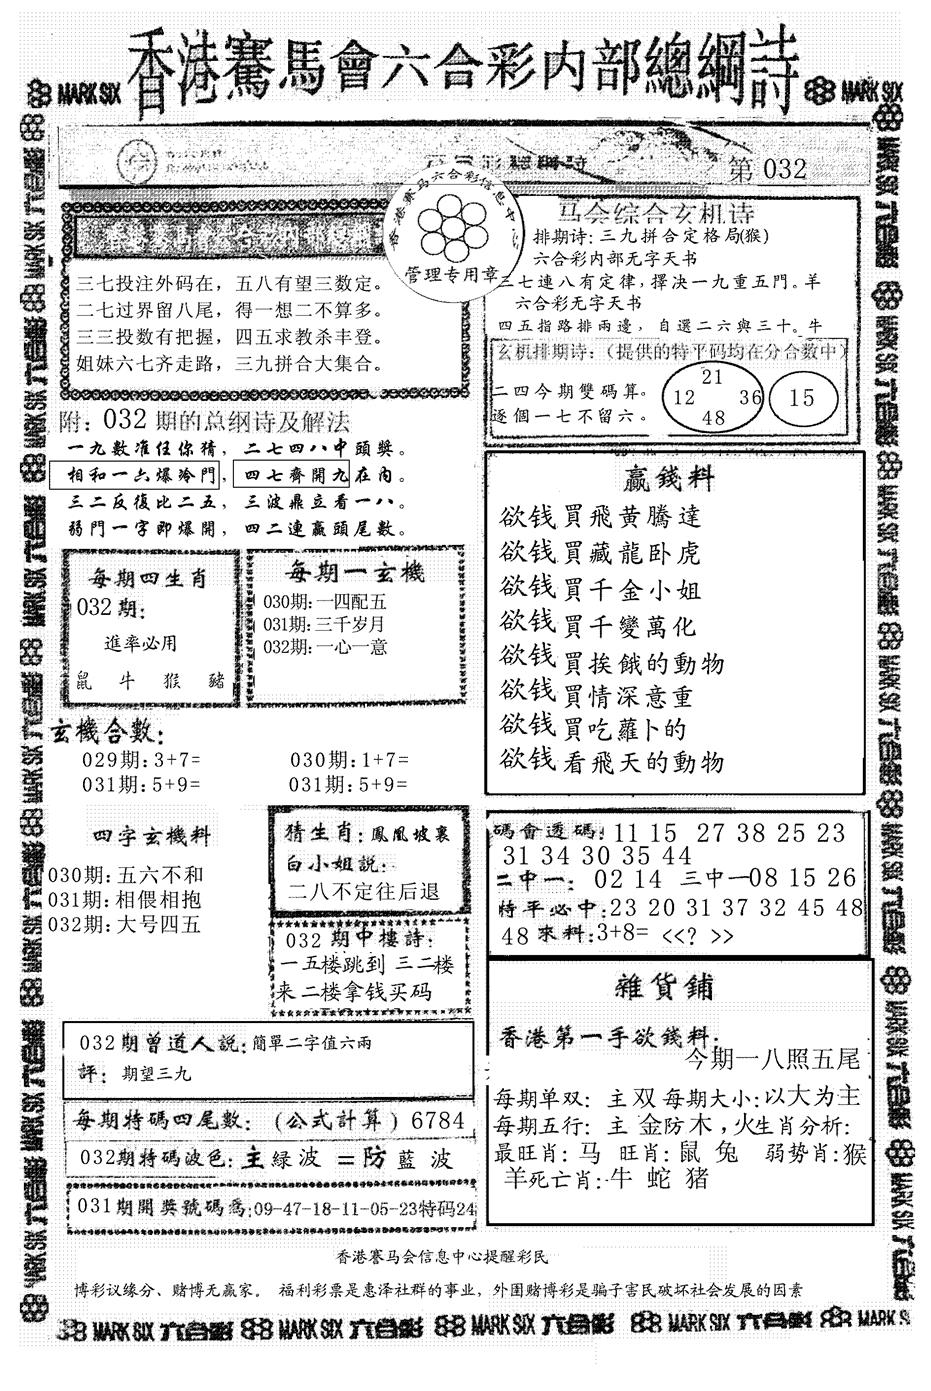 香港賽馬會六合彩内部總綱詩
MARK SIX
MARK SIX
第 032
香港赛马六合彩信息中心
管理专用章
三七投注外码在，五八有望三数定。
二七过界留八尾，得一想二不算多。
三三投数有把握，四五求教杀丰登。
姐妹六七齐走路，三九拼合大集合。
马会综合玄机诗
排期诗:三九拼合定格局(猴)
六合彩内部无字天书
三七連八有定律,擇决一九重五門。羊
六合彩无字天书
四五指路排兩邊，自選二六與三十。牛
玄机排期诗:（提供的特平码均在分合数中）
二四今期雙碼算。
逐個一七不留六。
21
12 36
48
15
附: 032 期的总纲诗及解法
一九數准任你猜，二七四八中頭獎。
相和一六爆冷門，四七齊開九在内。
三二反復比二五，三波鼎立看一八。
弱門一字即爆開，四二連贏頭尾數。
每期四生肖
032期:
進率必用
鼠 牛 猴 豬
每期一玄機
030期:一四配五
031期:三千岁月
032期:一心一意
贏錢料
欲钱買飛黄騰達
欲钱買藏龍卧虎
欲钱買千金小姐
欲钱買千變萬化
欲钱買挨餓的動物
欲钱買情深意重
欲钱買吃蘿卜的
欲钱看飛天的動物
玄機合數:
029期:3+7= 030期:1+7=
031期:5+9= 031期:5+9=
四字玄機料
030期:五六不和
031期:相偎相抱
032期:大号四五
猜生肖:鳳凰坡裏
白小姐説:
二八不定往后退
032 期中樓詩:
一五楼跳到 三二楼
来二楼拿钱买码
碼會透碼: 11 15 27 38 25 23
31 34 30 35 44
二中一: 02 14 三中一08 15 26
特平必中:23 20 31 37 32 45 48
48 來料:3+8= <<? >>
雜貨鋪
香港第一手欲錢料:
今期一八照五尾
每期单双: 主 双 每期大小:以大为主
每期五行: 主 金防木，火生肖分析:
最旺肖: 马 旺肖: 鼠 兔 弱势肖:猴
羊死亡肖:牛 蛇 猪
032期曾道人説:簡單二字值六兩
評: 期望三九
每期特碼四尾數:（公式計算）6784
032期特碼波色:主 緑波 = 防 藍波
031期開獎號碼爲:09-47-18-11-05-23特码24
香港賽马会信息中心提醒彩民
博彩议缘分、赌博无赢家。 福利彩票是惠泽社群的事业，外围赌博彩是骗子害民破坏社会发展的因素
MARK SIX 六合彩 MARK SIX 六合彩 MARK SIX 六合彩 MARK SIX 六合彩 MARK SIX